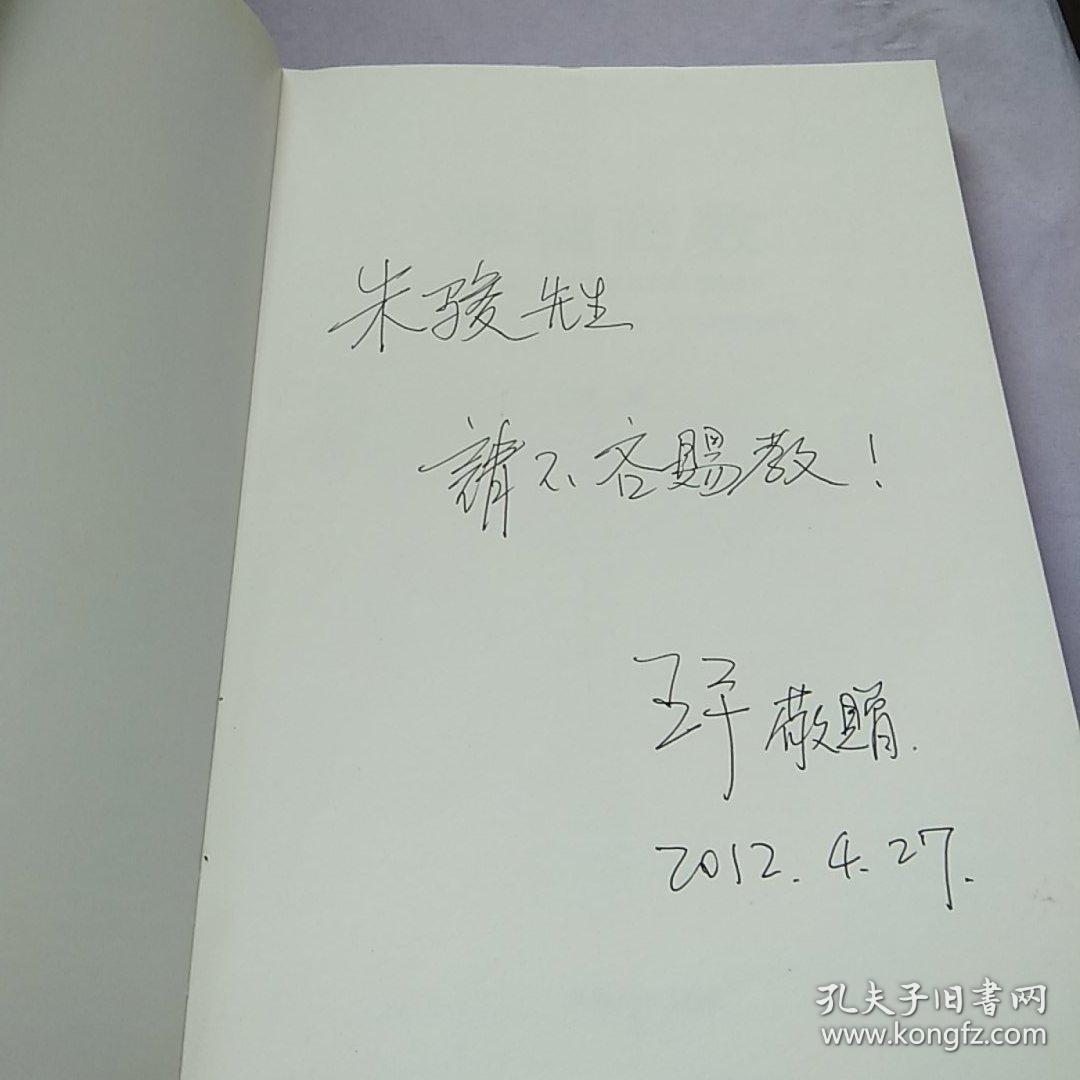 朱骏先生
請不吝賜教！
王平 敬贈.
2012.4.27.
孔夫子旧書网
www.kongfz.com